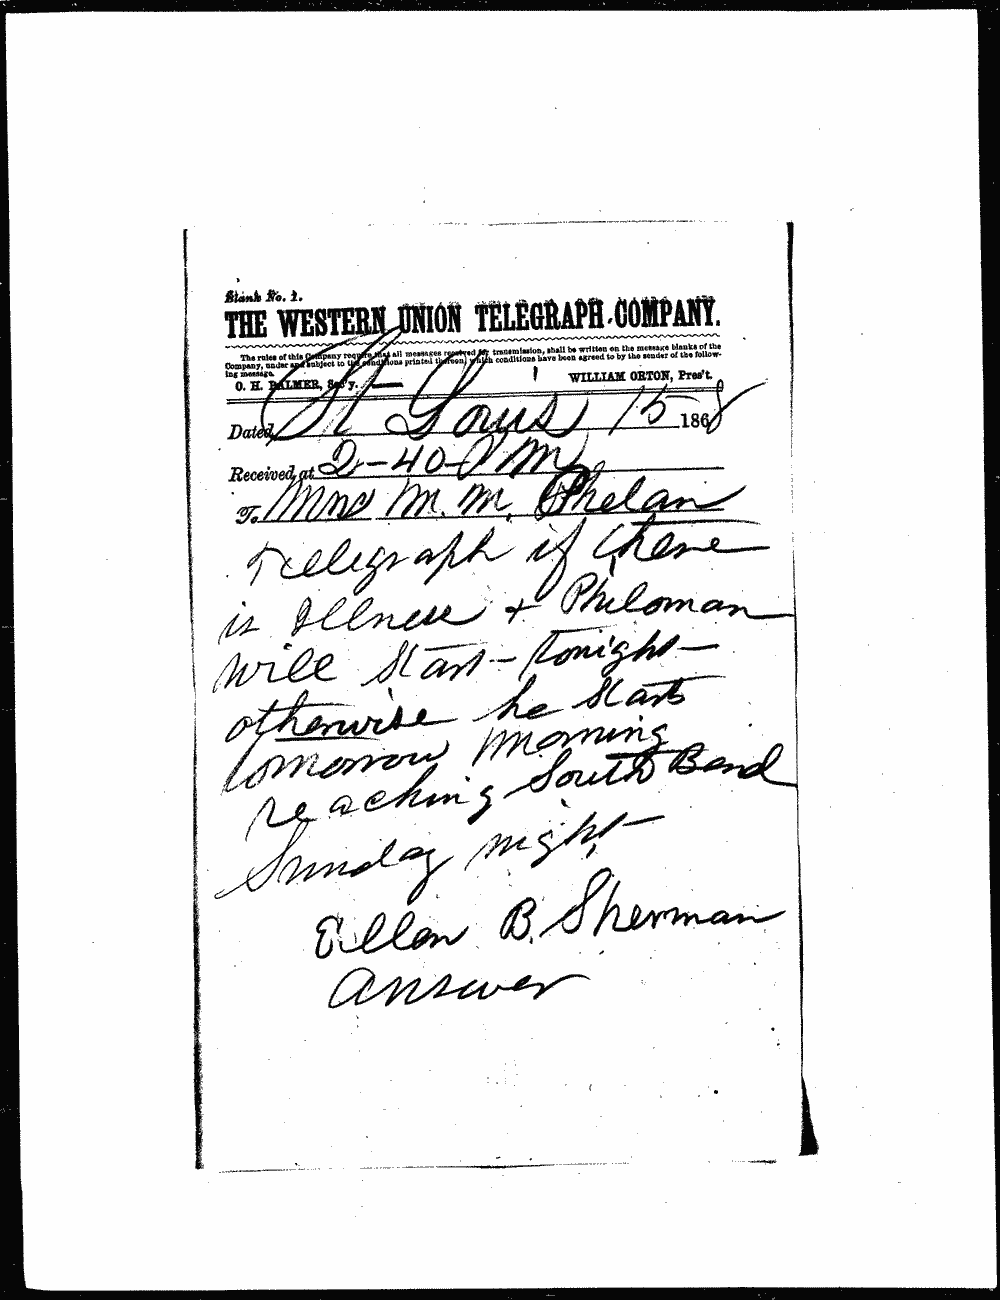 Blank No. 1.
THE WESTERN UNION TELEGRAPH COMPANY.
The rules of this Company require that all messages received for transmission, shall be written on the message blanks of the
Company, under and subject to the conditions printed thereon, which conditions have been agreed to by the sender of the follow-
ing message.
O. H. PALMER, Sec'y. WILLIAM ORTON, Pres't.
Dated, St Louis 15 1868
Received at 2-40 PM
To Mrs M. M. Phelan
Telegraph if there
is Illness & Philoman
will Start - tonight -
otherwise he Starts
tomorrow morning
reaching South Bend
Sunday night
Ellen B. Sherman
Answer